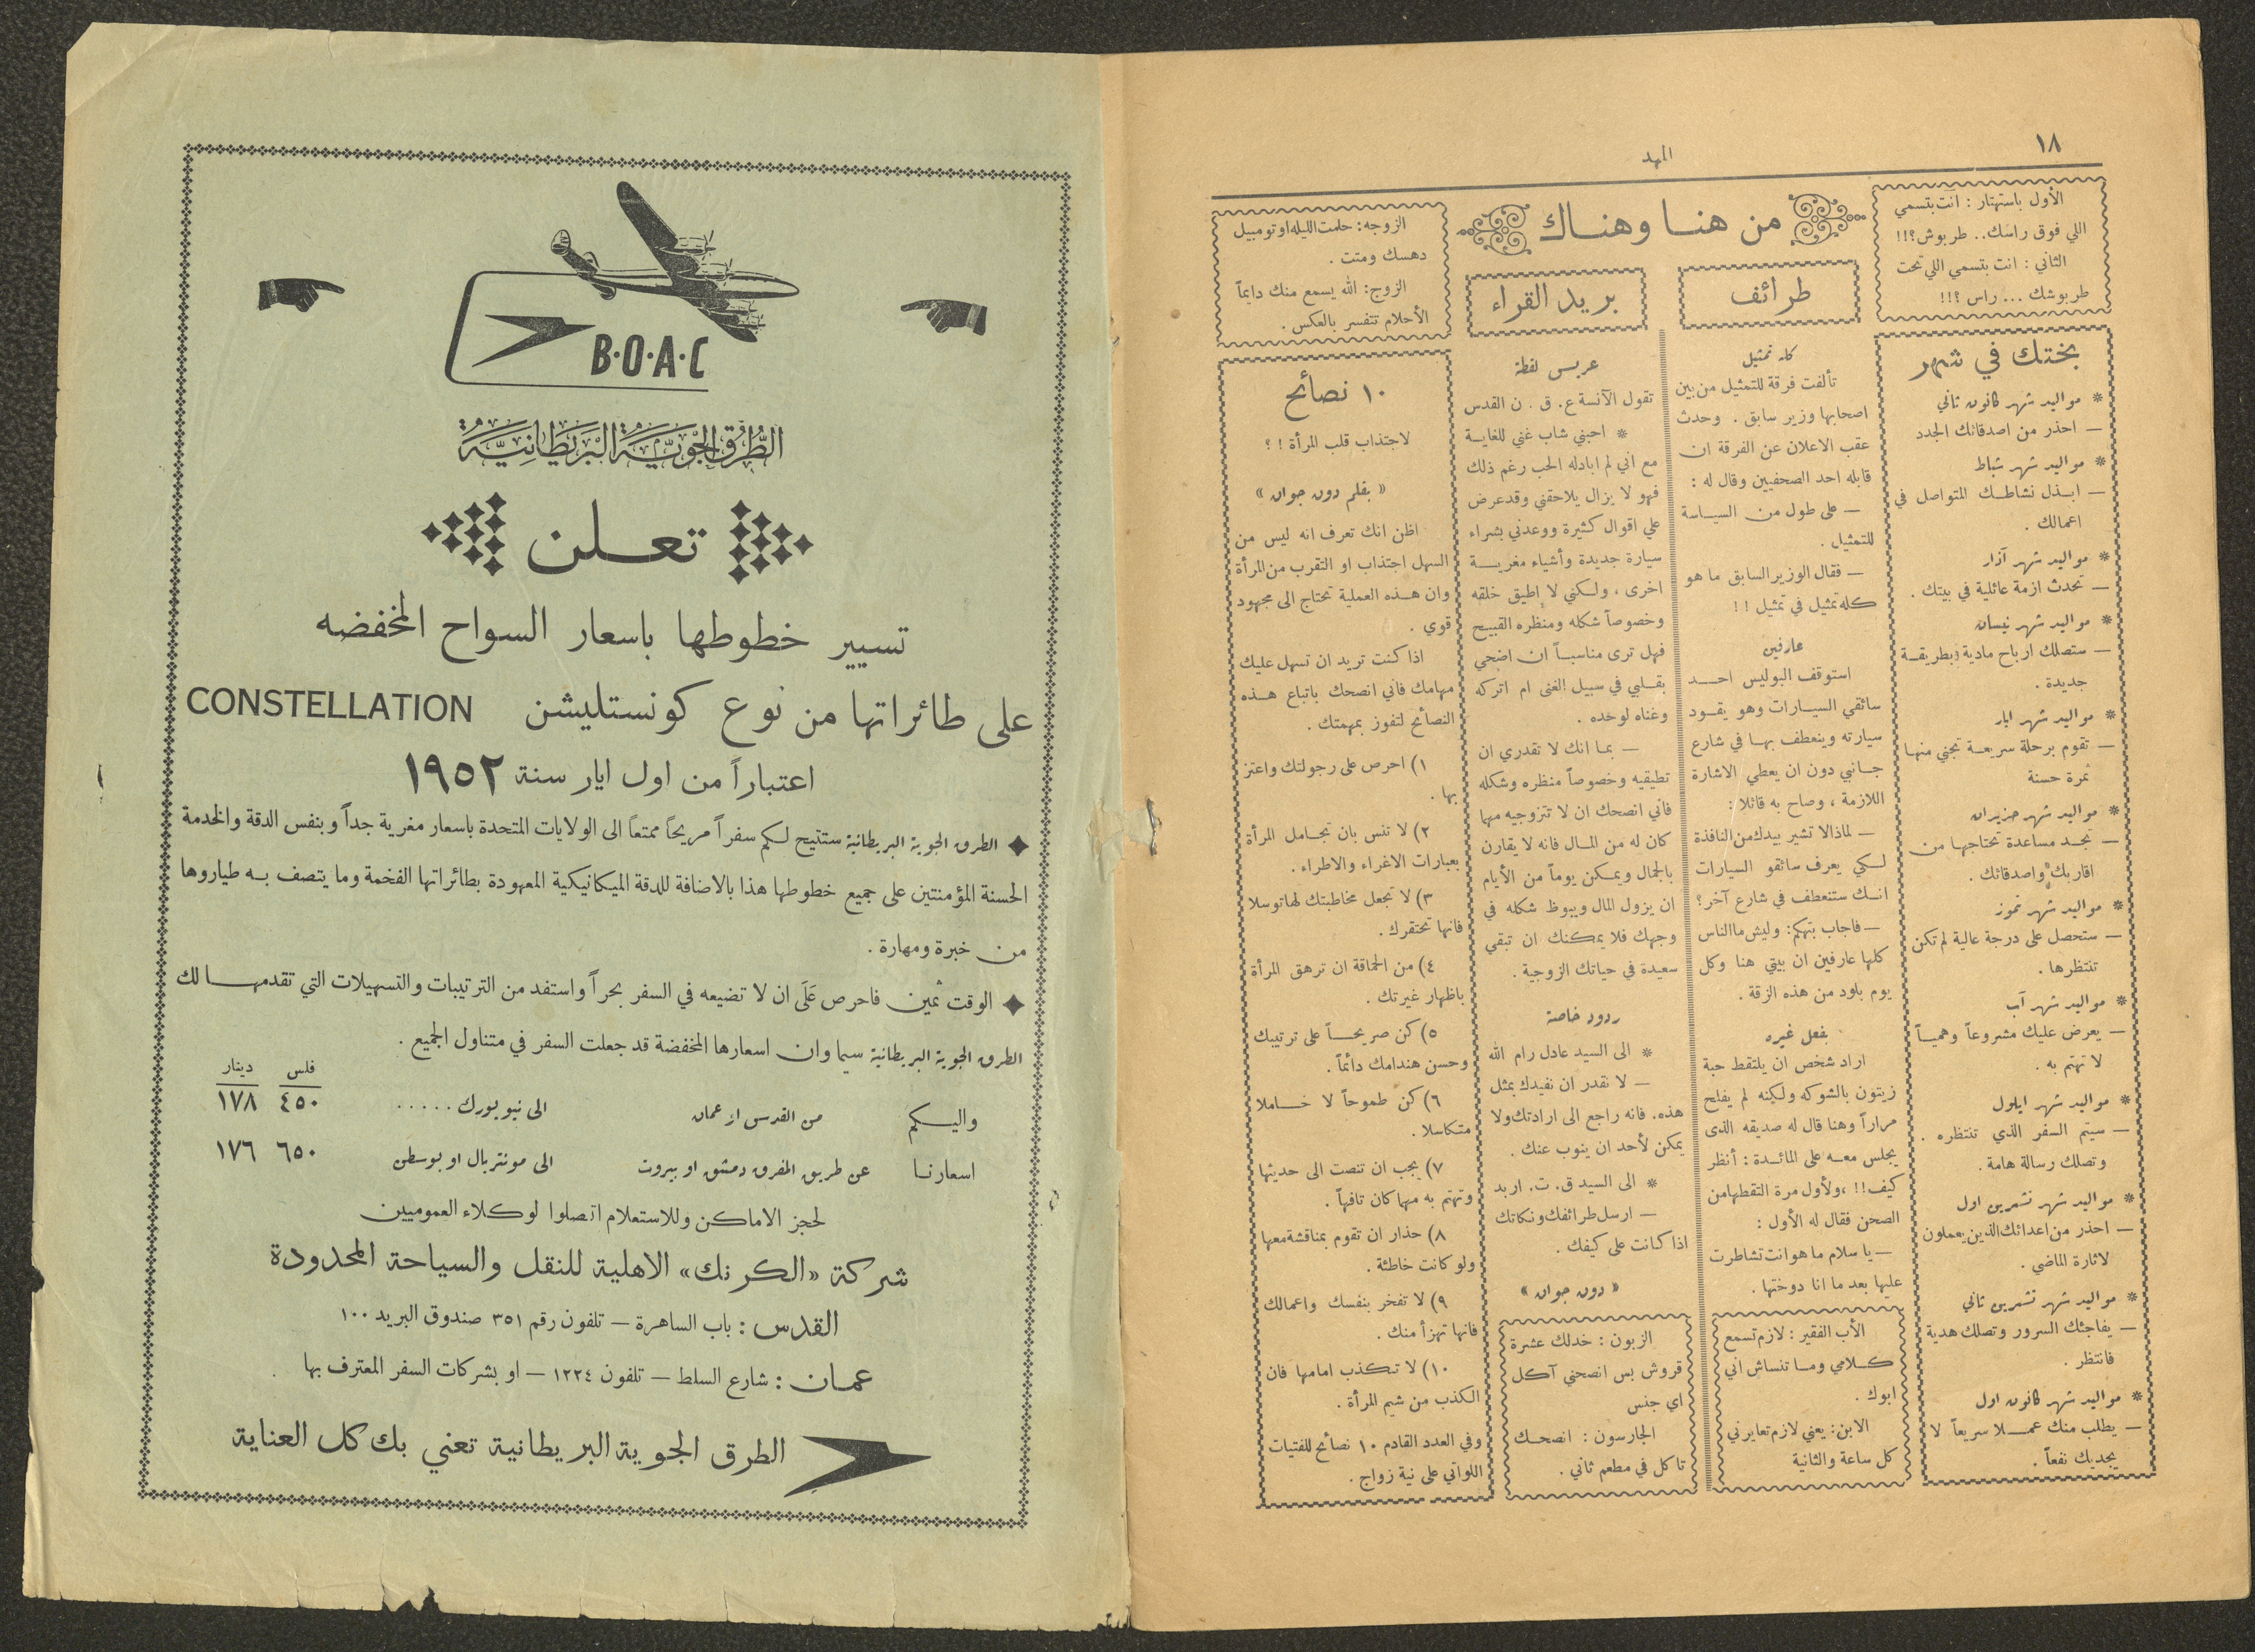 ١٨
المهد
الأول باستهتار : انت بتسمي
اللي فوق راسك.. طربوش؟!!
الثاني : انت بتسمي اللي تحت
طربوشك ... راس ؟!!
بختك في شهر
* مواليد شهر كانون ثاني
— احذر من اصدقائك الجدد
* مواليد شهر شباط
— ابـذل نشاطـك المتواصل في
اعمالك .
* مواليد شهر آذار
— تحدث ازمة عائلية في بيتك .
* مواليد شهر نيسان
— ستصلك ارباح مادية بطريقـة
جديدة .
* مواليد شهر ايار
— تقوم برحلة سريعـة تجني منهـا
ثمرة حسنة
* مواليد شهر حزيران
— تجـد مساعدة تحتاجهـا من
اقاربك واصدقائك .
* مواليد شهر تموز
— ستحصل على درجة عالية لم تكن
تنتظرها .
* مواليد شهر آب
— يعرض عليك مشروعاً وهميـاً
لا تهتم به .
* مواليد شهر ايلول
— سيتم السفر الذي تنتظره .
وتصلك رسالة هامة .
* مواليد شهر تشرين اول
— احذر من اعدائك الذين يعملون
لاثارة الماضي .
* مواليد شهر تشرين ثاني
— يفاجئك السرور وتصلك هدية
فانتظر .
* مواليد شهر كانون اول
— يطلب منك عمـلا سريعاً لا
يجديك نفعاً .
من هنـا وهنـاك
طرائف
كله تمثيل
تألفت فرقة للتمثيل من بين
اصحابها وزير سابق . وحدث
عقب الاعلان عن الفرقة ان
قابله احد الصحفيين وقال له :
— على طول من السيـاسة
للتمثيل .
— فقال الوزير السابق ما هو
كله تمثيل في تمثيل ! !
عارفين
استوقف البوليس احـد
سائقي السيـارات وهو يقـود
سيارته وينعطف بهـا في شارع
جـانبي دون ان يعطي الاشارة
اللازمة ، وصاح به قائلا :
— لماذا لا تشير بيدك من النافذة
لـكي يعرف سائقو السيارات
انـك ستنعطف في شارع آخر ؟
— فاجاب بتهكم : وليش ما الناس
كلها عارفين ان بيتي هنا وكل
يوم بلود من هذه الزقة .
بفعل غيره
اراد شخص ان يلتقط حبة
زيتون بالشوكه ولكنه لم يفلح
مراراً وهنا قال له صديقه الذى
يجلس معـه على المائـدة : أنظر
كيف !! ، ولأول مرة التقطها من
الصحن فقال له الأول :
— يا سلام ما هو انت تشاطرت
عليها بعد ما انا دوختها .
الأب الفقير : لازم تسمع
كـلامي ومـا تنساش اني
ابوك .
الابن : يعني لازم تعايرني
كل ساعة والثانية
بريد القراء
عريس لقطة
تقول الآنسة ع. ق . ن القدس
* احبني شاب غني للغايـة
مع اني لم ابادله الحب رغم ذلك
فهو لا يزال يلاحقني وقد عرض
علي اقوال كثيرة ووعدني بشراء
سيارة جديدة وأشياء مغريـة
اخرى ، ولـكني لا اطيق خلقه
وخصوصاً شكله ومنظره القبيح
فهل ترى مناسبـاً ان اضحي
بقـلبي في سبيل الغنى ام اتركه
وغناه لوحده .
— بمـا انك لا تقدري ان
تطيقيه وخصوصاً منظره وشكله
فاني انصحك ان لا تتزوجيه مهما
كان له من المـال فانه لا يقارن
بالجمال ويمـكن يوماً من الأيام
ان يزول المال ويبوظ شكله في
وجهك فلا يمكنك ان تبقي
سعيدة في حياتك الزوجية .
ردود خاصة
* الى السيد عادل رام الله
— لا نقدر ان نفيدك بمثل
هذه. فانه راجع الى ارادتك ولا
يمكن لأحد ان ينوب عنك .
* الى السيد ق. ت. اربد
— ارسل طرائفك ونكاتك
اذا كانت على كيفك .
« دون جوان »
الزبون : خدلك عشرة
قروش بس انصحني آكل
اي جنس
الجارسون : انصحـك
تاكل في مطعم ثاني .
الزوجه : حلمت الليله اوتومبيل
دهسك ومتت .
الزوج : الله يسمع منك دايماً
الأحلام تتفسر بالعكس .
١٠ نصائح
لاجتذاب قلب المرأة ! ؟
« بقلم دون جوان »
اظن انك تعرف انه ليس من
السهل اجتذاب او التقرب من المرأة
وان هـذه العملية تحتاج الى مجهود
قوي .
اذا كنت تريد ان تسهل عليك
مهامك فاني انصحك باتباع هـذه
النصائح لتفوز بمهمتك .
١) احرص على رجولتك واعتز
بها .
٢) لا تنس بان تجـامل المرأة
بعبارات الاغراء والاطراء .
٣) لا تجعل مخاطبتك لها توسلا
فانها تحتقرك .
٤) من الحماقة ان ترهق المرأة
باظهار غيرتك .
٥) كن صريحـاً على ترتيبك
وحسن هندامك دائماً .
٦) كن طموحاً لا خـاملا
متكاسلا .
٧) يجب ان تنصت الى حديثها
وتهتم به مهما كان تافهاً .
٨) حذار ان تقوم بمناقشة معها
ولو كانت خاطئة .
٩) لا تفخر بنفسك واعمالك
فانها تهزأ منك .
١٠) لا تـكذب امامها فان
الكذب من شيم المرأة .
وفي العدد القادم ١٠ نصائح للفتيات
اللواتي على نية زواج .
B·O·A·C
الطُّرُق الجَوِّيَّةُ البَرِيطَانِيَّةُ
تعـلن
تسيير خطوطها باسعار السواح المخفضه
على طائراتها من نوع كونستليشن CONSTELLATION
اعتباراً من اول ايار سنة ١٩٥٢
الطرق الجوية البريطانية ستتيح لـكم سفراً مريحاً ممتعاً الى الولايات المتحدة باسعار مغرية جداً وبنفس الدقة والخدمة
الحسنة المؤمنتين على جميع خطوطها هذا بالاضافة للدقة الميكانيكية المعهودة بطائراتها الفخمة وما يتصف بـه طياروها
من خبرة ومهارة .
الوقت ثمين فاحرص عَلَى ان لا تضيعه في السفر بحراً واستفد من الترتيبات والتسهيلات التي تقدمهـا لك
الطرق الجوية البريطانية سيما وان اسعارها المخفضة قد جعلت السفر في متناول الجميع .
فلس دينار
واليـكم من القدس او عمان الى نيويورك ..... ٤٥٠ ١٧٨
اسعارنـا عن طريق المفرق دمشق او بيروت الى مونتريال او بوسطن ٦٥٠ ١٧٦
لحجز الاماكن وللاستعلام اتصلوا لوكلاء العموميين
شركة «الكرنك» الاهلية للنقل والسياحة المحدودة
القدس : باب الساهرة — تلفون رقم ٣٥١ صندوق البريد ١٠٠
عمـان : شارع السلط — تلفون ١٢٢٤ — او بشركات السفر المعترف بها .
الطرق الجوية البريطانية تعني بك كل العناية